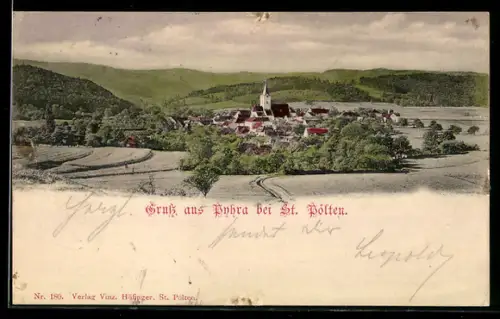 Gruß aus Pyhra bei St. Pölten.
sendet Dir Leopold
Nr. 180. Verlag Vinz. Höfinger, St. Pölten.